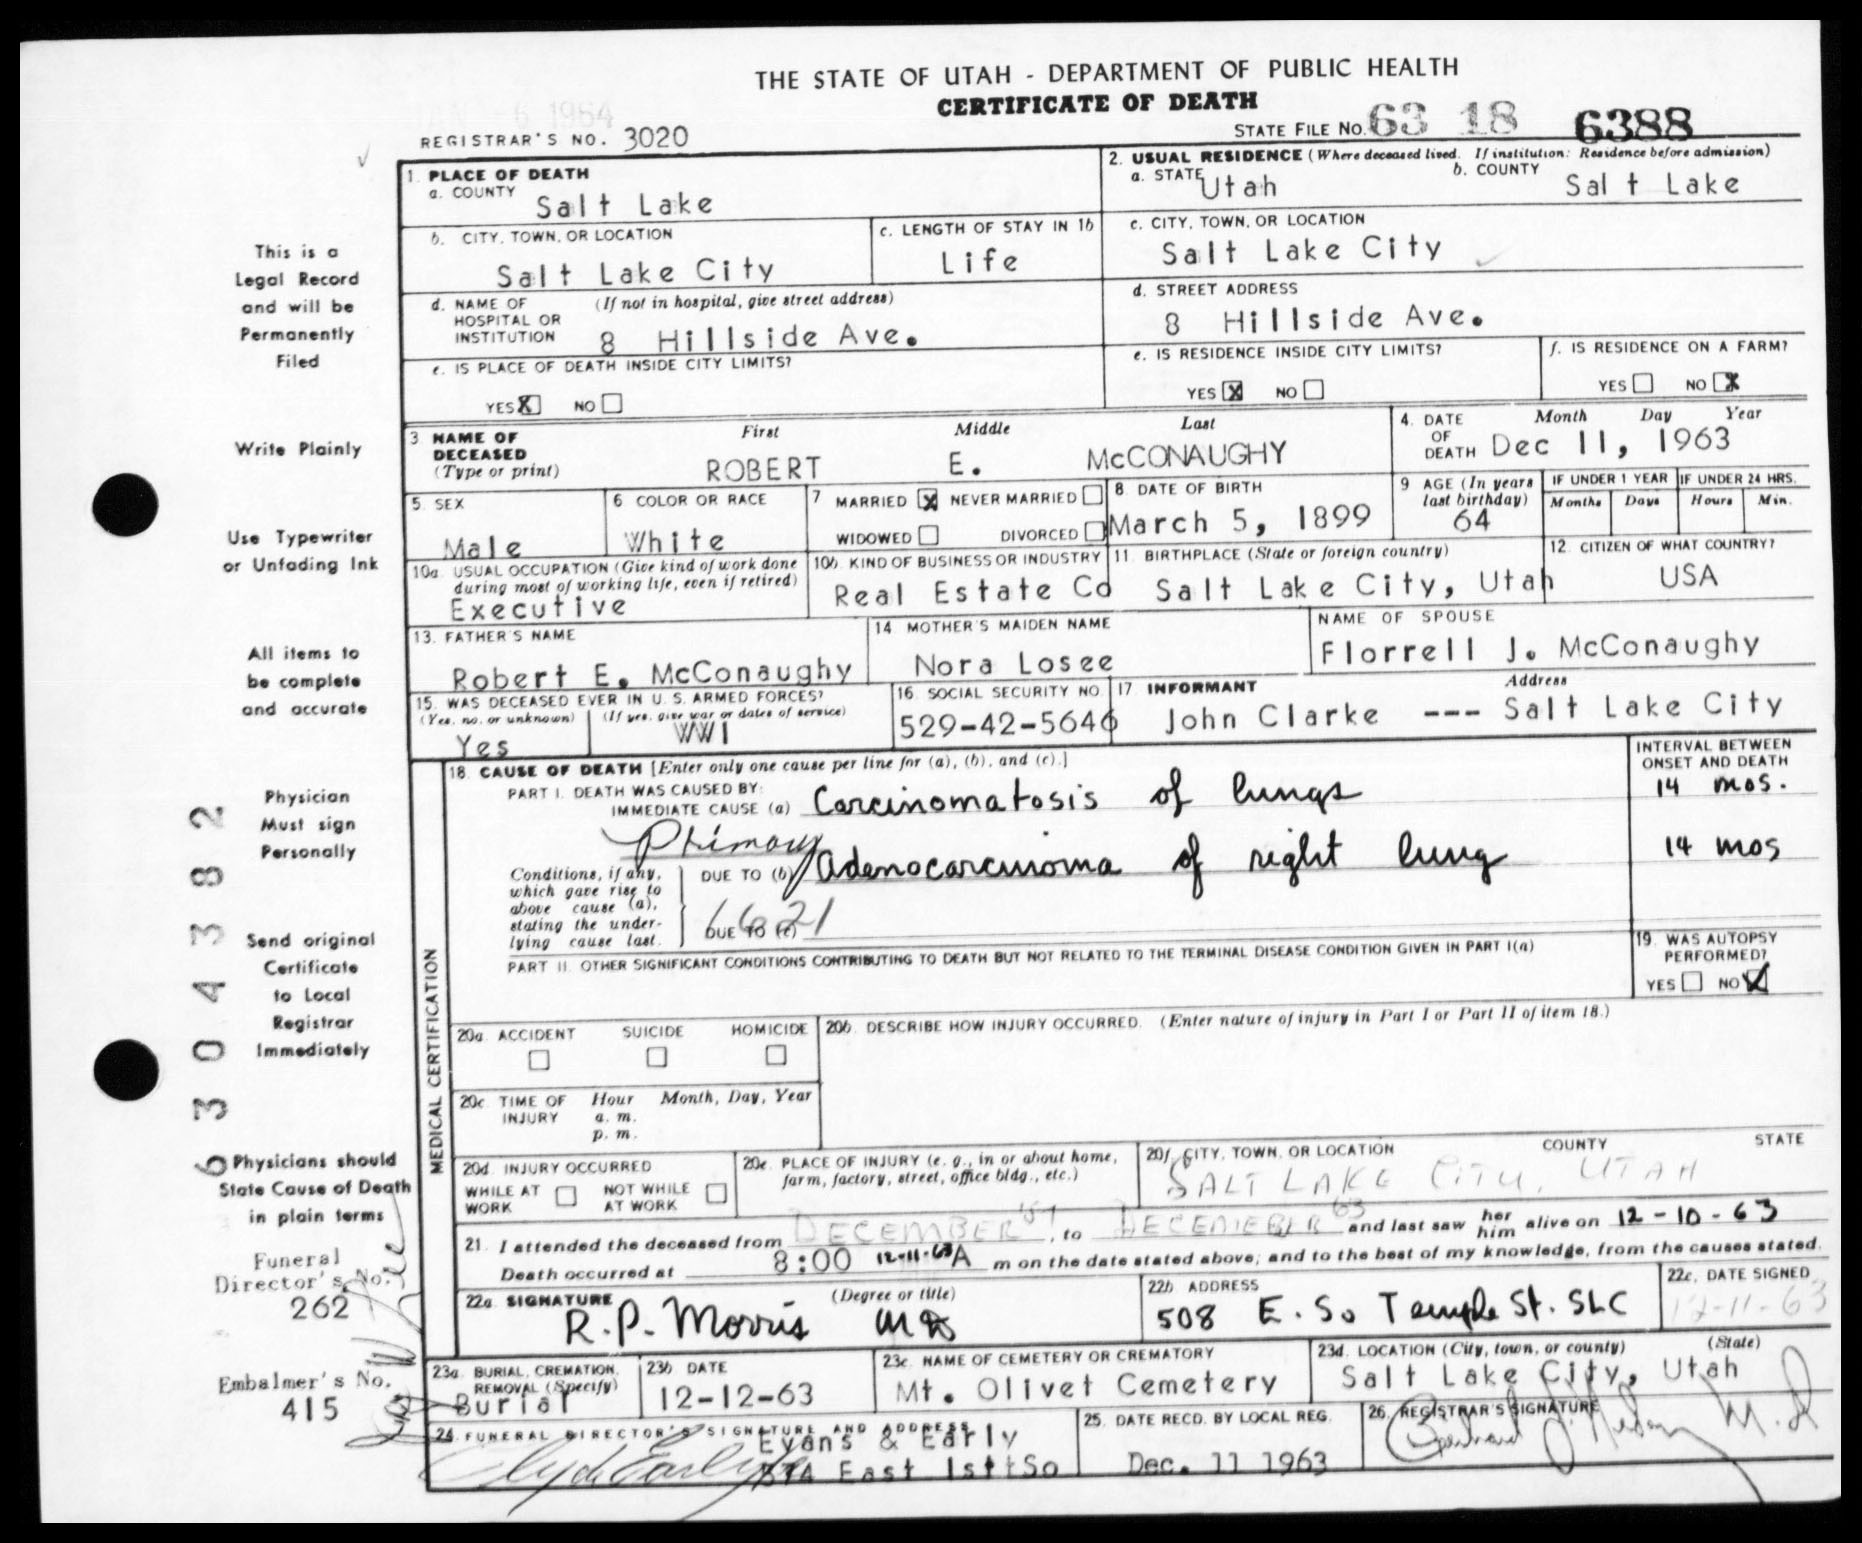 JAN -6 1964
THE STATE OF UTAH - DEPARTMENT OF PUBLIC HEALTH
CERTIFICATE OF DEATH
REGISTRAR'S NO. 3020
STATE FILE NO. 63 18 6388
1. PLACE OF DEATH
a. COUNTY Salt Lake
2. USUAL RESIDENCE (Where deceased lived. If institution: Residence before admission)
a. STATE Utah b. COUNTY Salt Lake
b. CITY, TOWN, OR LOCATION
Salt Lake City
c. LENGTH OF STAY IN 1b
Life
c. CITY, TOWN, OR LOCATION
Salt Lake City
d. NAME OF HOSPITAL OR INSTITUTION (If not in hospital, give street address)
8 Hillside Ave.
d. STREET ADDRESS
8 Hillside Ave.
e. IS PLACE OF DEATH INSIDE CITY LIMITS?
YES X NO
e. IS RESIDENCE INSIDE CITY LIMITS?
YES X NO
f. IS RESIDENCE ON A FARM?
YES NO X
3. NAME OF DECEASED (Type or print)
First Middle Last
ROBERT E. McCONAUGHY
4. DATE OF DEATH Month Day Year
Dec 11, 1963
5. SEX
Male
6 COLOR OR RACE
White
7 MARRIED X NEVER MARRIED
WIDOWED DIVORCED
8 DATE OF BIRTH
March 5, 1899
9 AGE (In years last birthday)
64
IF UNDER 1 YEAR
Months Days
IF UNDER 24 HRS.
Hours Min.
10a. USUAL OCCUPATION (Give kind of work done during most of working life, even if retired)
Executive
10b. KIND OF BUSINESS OR INDUSTRY
Real Estate Co
11. BIRTHPLACE (State or foreign country)
Salt Lake City, Utah
12. CITIZEN OF WHAT COUNTRY?
USA
13. FATHER'S NAME
Robert E. McConaughy
14 MOTHER'S MAIDEN NAME
Nora Losee
NAME OF SPOUSE
Florrell J. McConaughy
15. WAS DECEASED EVER IN U. S. ARMED FORCES?
(Yes, no, or unknown) (If yes, give war or dates of service)
Yes WWI
16. SOCIAL SECURITY NO.
529-42-5646
17 INFORMANT Address
John Clarke --- Salt Lake City
MEDICAL CERTIFICATION
18. CAUSE OF DEATH [Enter only one cause per line for (a), (b), and (c).]
INTERVAL BETWEEN ONSET AND DEATH
PART I. DEATH WAS CAUSED BY:
IMMEDIATE CAUSE (a) Carcinomatosis of lungs 14 mos.
Primary
Conditions, if any, which gave rise to above cause (a), stating the underlying cause last.
DUE TO (b) Adenocarcinoma of right lung 14 mos
DUE TO (c)
PART II. OTHER SIGNIFICANT CONDITIONS CONTRIBUTING TO DEATH BUT NOT RELATED TO THE TERMINAL DISEASE CONDITION GIVEN IN PART I(a)
19. WAS AUTOPSY PERFORMED?
YES NO X
20a. ACCIDENT SUICIDE HOMICIDE
20b. DESCRIBE HOW INJURY OCCURRED. (Enter nature of injury in Part I or Part II of item 18.)
20c TIME OF INJURY Hour Month, Day, Year
a. m.
p. m.
20d. INJURY OCCURRED
WHILE AT WORK NOT WHILE AT WORK
20e. PLACE OF INJURY (e. g., in or about home, farm, factory, street, office bldg., etc.)
20f. CITY, TOWN, OR LOCATION COUNTY STATE
SALT LAKE CITY, UTAH
21. I attended the deceased from DECEMBER, to DECEMEBER 63 and last saw her him alive on 12-10-63
Death occurred at 8:00 12-11-63 A m on the date stated above; and to the best of my knowledge, from the causes stated.
22a. SIGNATURE (Degree or title)
R.P. Morris MD
22b ADDRESS
508 E. So Temple St. SLC
22c. DATE SIGNED
12-11-63
23a. BURIAL, CREMATION, REMOVAL (Specify)
Burial
23b DATE
12-12-63
23c. NAME OF CEMETERY OR CREMATORY
Mt. Olivet Cemetery
23d. LOCATION (City, town, or county) (State)
Salt Lake City, Utah
24. FUNERAL DIRECTOR'S SIGNATURE AND ADDRESS
Evans & Early
Clyde Early East 1st So
25. DATE RECD. BY LOCAL REG.
Dec. 11 1963
26. REGISTRAR'S SIGNATURE
M.D.
This is a
Legal Record
and will be
Permanently
Filed
Write Plainly
Use Typewriter
or Unfading Ink
All items to
be complete
and accurate
Physician
Must sign
Personally
Send original
Certificate
to Local
Registrar
Immediately
Physicians should
State Cause of Death
in plain terms
Funeral
Director's No.
262
Embalmer's No.
415
6 3 0 4 3 3 8 2